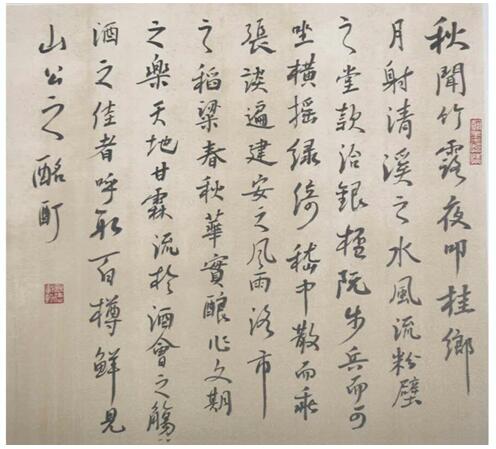 秋聞竹露夜叩桂鄉
月射清溪之水風流粉壁
之堂款洽銀阮步兵而可
坐橫搖綠綺嵇中散而乖
張談遍建安之風雨洛市
之稻粱春秋華實釀作文期
之樂天地甘霖流於酒會之觴
酒之佳者呼取百樽鮮見
山公之酩酊